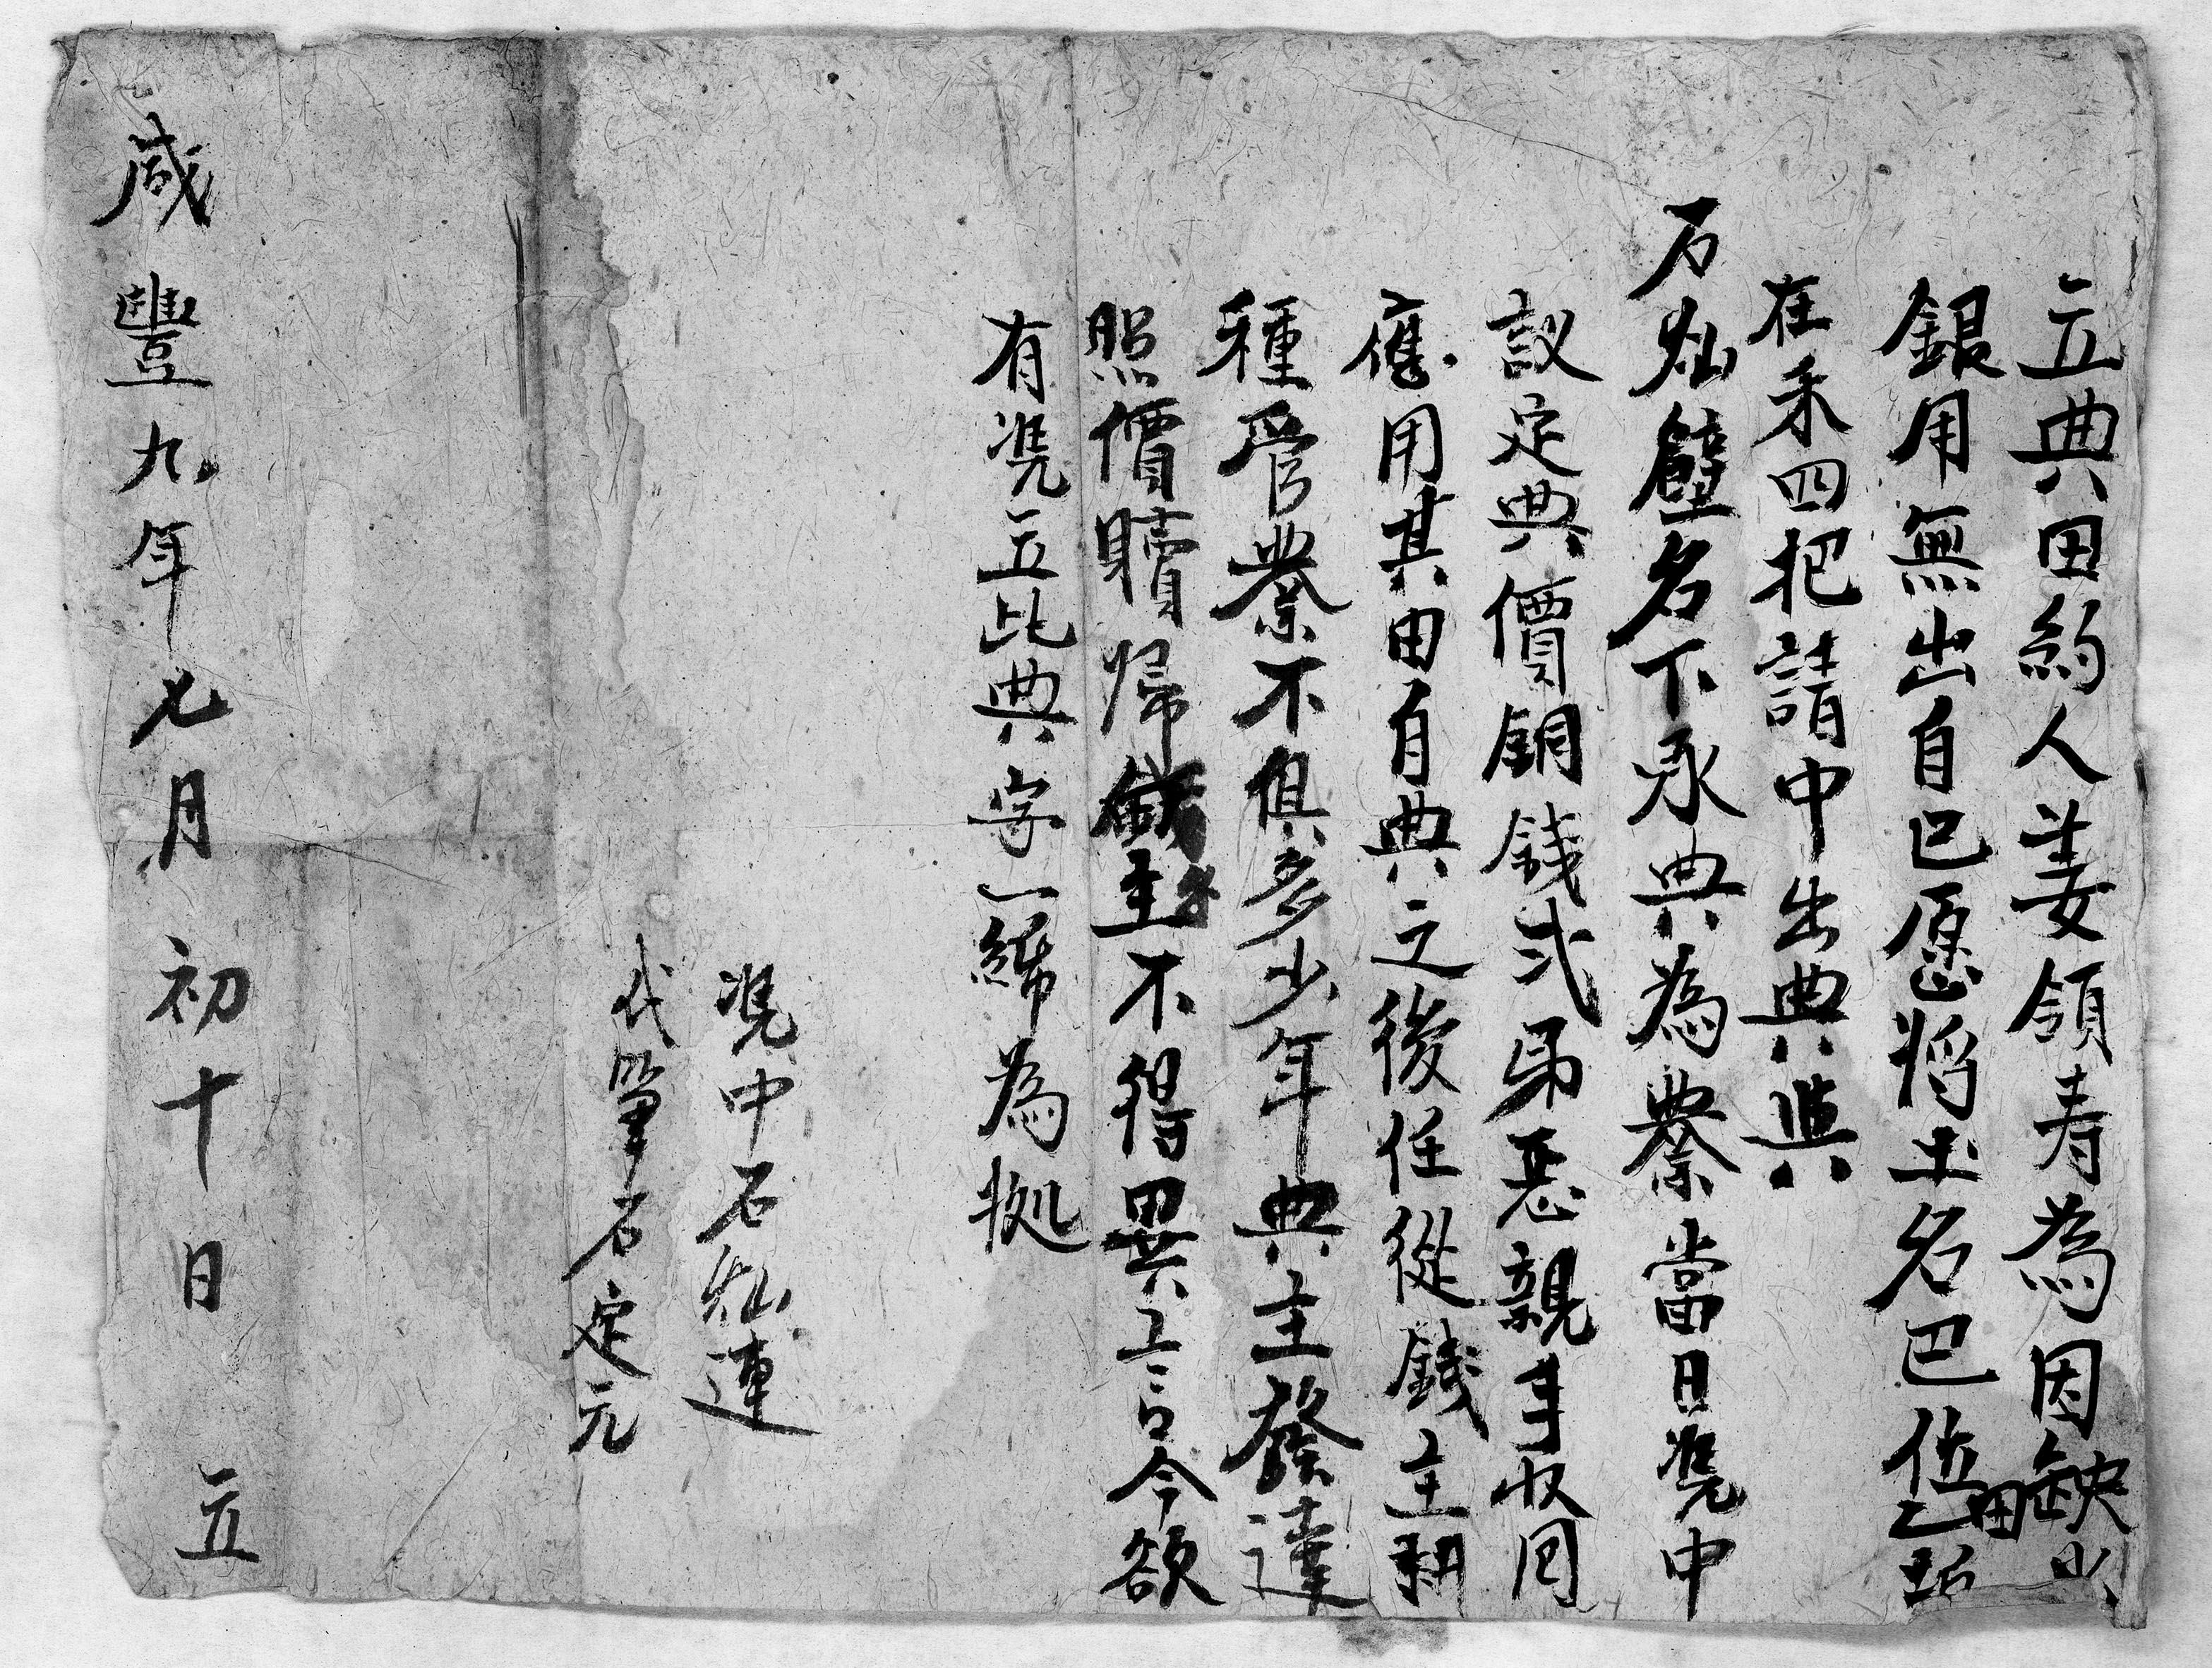 立典田約人姜領寿為因缺少
銀用無出自己愿将土名巴俭田乙坵
在禾四把請中出典與
石灿 名下承典為業當日凴中
議定典價銅錢弍 悉親手收回
應用其田自典之後任從錢主耕
種管業不俱多少年典主發達
照價贖歸錢主不得異言今欲
有凴立此典字一紙為拠
凴中石灿連
代筆石定元
咸豐九年七月初十日立